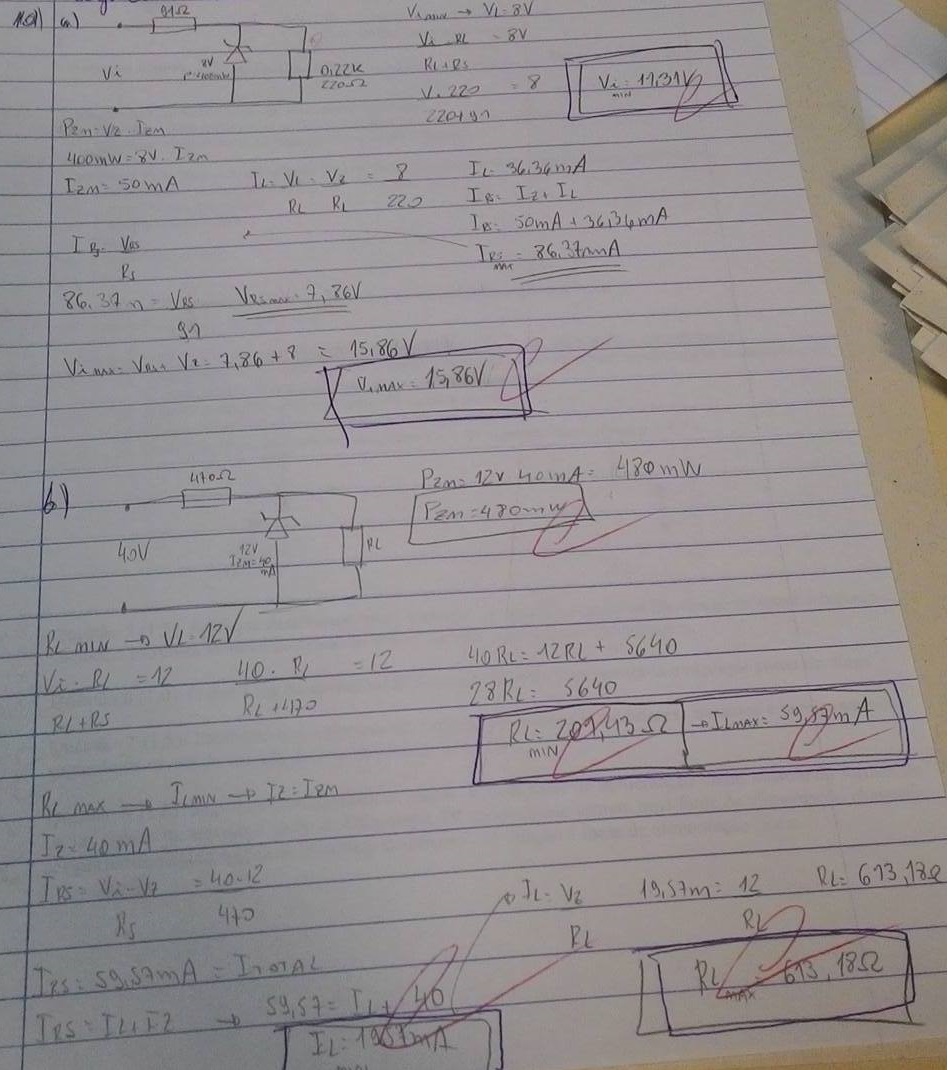 a)
91Ω
Vi
8V
0,22K
220Ω
Vimin → VL=8V
Vi.RL = 8V
RL+Rs
Vi.220 = 8
220+91
Vi min = 11,31V
PZM=VZ.IZM
400mW=8V.IZM
IZM=50mA
IL=VL=VZ=8
RL RL 220
IL=36,36mA
IRs=IZ+IL
IRs=50mA+36,36mA
IRs = 86,37mA
IRs=VRs
Rs
86,37m=VRs
91
VRsmax=7,86V
Vimax=VRs+VZ=7,86+8 = 15,86V
Vimax=15,86V
b)
470Ω
40V
12V
IZM=40
mA
RL
PZM=12V.40mA=480mW
PZM=480mW
RL min → VL=12V
Vi.RL=12
RL+Rs
40.RL=12
RL+470
40RL=12RL+5640
28RL=5640
RL min=201,43Ω → ILmax=59,57mA
RL max → ILmin → IZ=IZM
IZ=40mA
IRs=Vi-VZ=40-12
Rs 470
IRs=59,57mA=ITOTAL
IRs=IL+IZ → 59,57=IL+40
IL=19,57mA
min
→ IL=VZ
RL
19,57m=12
RL
RL=613,18Ω
RL MAX = 613,18Ω